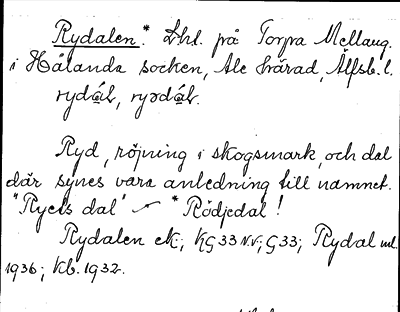 Rydalen.* Lhl. på Torpa Mellang.
i Hålanda socken, Ale härad, Älfsb. l.
Ryd, röjning i skogsmark, och dal
där synes vara anledning till namnet.
"Ryets dal" *Rödjedal!
Rydalen ek; KG 33 NV; G 33; Rydal ml.
1936; Kb. 1932.